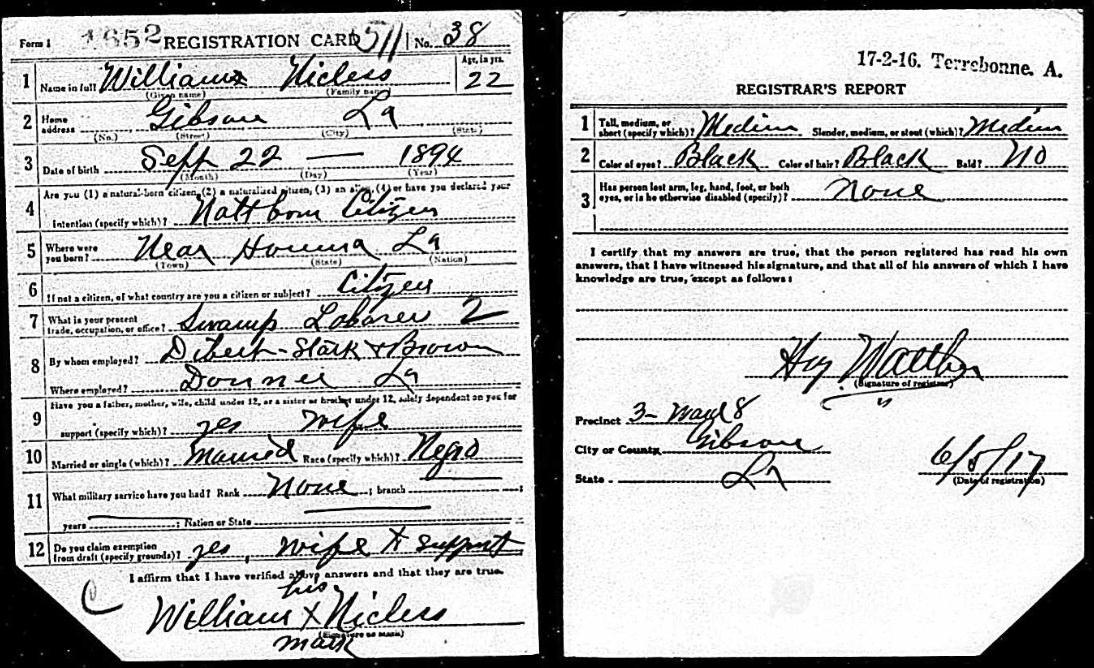 Form 1 1652 REGISTRATION CARD 511 No. 38
1 Name in full Williams Nicless Age, in yrs. 22
(Given name) (Family name)
2 Home address Gibson La
(No.) (Street) (City) (State)
3 Date of birth Sept 22 — 1894
(Month) (Day) (Year)
4 Are you (1) a natural-born citizen, (2) a naturalized citizen, (3) an alien, (4) or have you declared your
intention (specify which)? Natl born Citizen
5 Where were you born? Near Houma La
(Town) (State) (Nation)
6 If not a citizen, of what country are you a citizen or subject? Citizen
7 What is your present trade, occupation, or office? Swamp Laborer 2
8 By whom employed? Dibert-Stark & Brown
Where employed? Donner La
9 Have you a father, mother, wife, child under 12, or a sister or brother under 12, solely dependent on you for
support (specify which)? yes wife
10 Married or single (which)? Married Race (specify which)? Negro
11 What military service have you had? Rank None ; branch ;
years ; Nation or State
12 Do you claim exemption from draft (specify grounds)? yes, wife to support
I affirm that I have verified above answers and that they are true.
his
William X Nicless
(Signature or mark)
mark
17-2-16. Terrebonne. A.
REGISTRAR'S REPORT
1 Tall, medium, or short (specify which)? Medium Slender, medium, or stout (which)? Medium
2 Color of eyes? Black Color of hair? Black Bald? No
3 Has person lost arm, leg, hand, foot, or both eyes, or is he otherwise disabled (specify)? None
I certify that my answers are true, that the person registered has read his own
answers, that I have witnessed his signature, and that all of his answers of which I have
knowledge are true, except as follows:
Hy. Walther
(Signature of registrar)
Precinct 3- Ward 8
City or County Gibson
State La
6/5/17
(Date of registration)